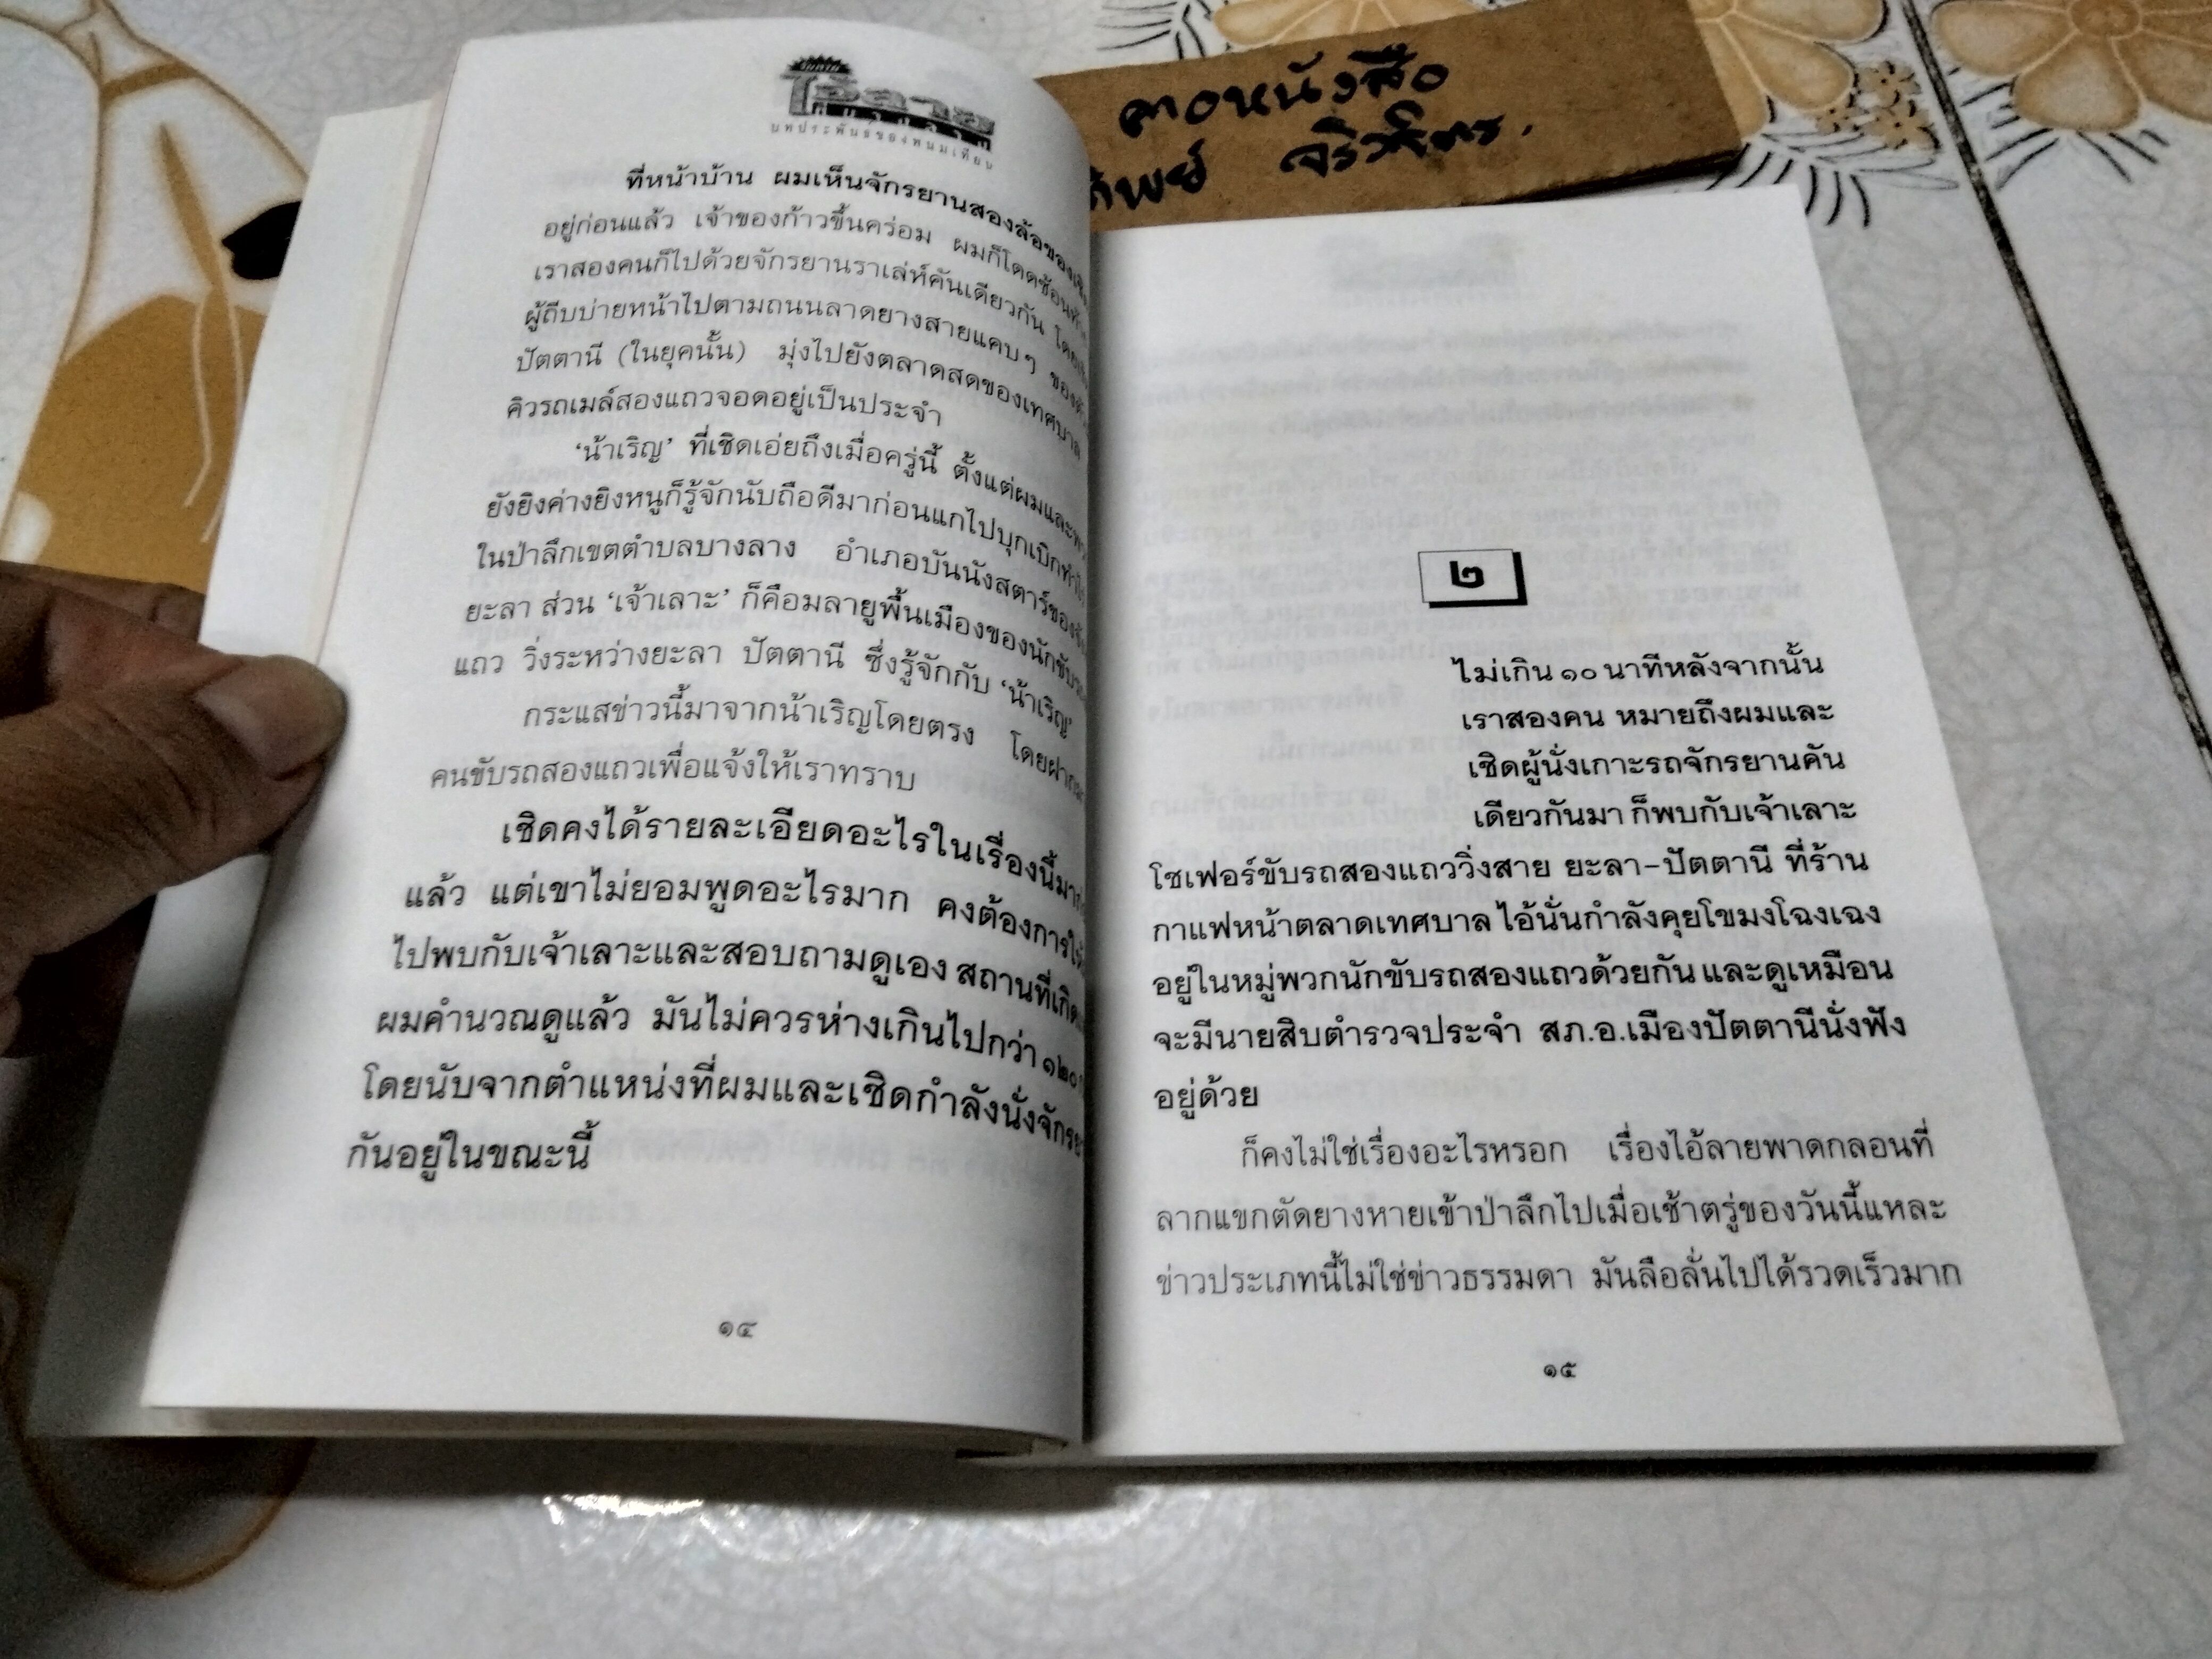 บทประพันธ์ของพนมเทียน
ที่หน้าบ้าน ผมเห็นจักรยานสองล้อของเชิด
อยู่ก่อนแล้ว เจ้าของก้าวขึ้นคร่อม ผมก็โดดซ้อนท้าย
เราสองคนก็ไปด้วยจักรยานราเล่ห์คันเดียวกัน
ผู้ถีบบ่ายหน้าไปตามถนนลาดยางสายแคบๆ
ปัตตานี (ในยุคนั้น) มุ่งไปยังตลาดสดของเทศบาล
คิวรถเมล์สองแถวจอดอยู่เป็นประจำ
‘น้าเริญ’ ที่เชิดเอ่ยถึงเมื่อครู่นี้ ตั้งแต่ผมและ
ยังยิงค่างยิงหนูก็รู้จักนับถือดีมาก่อนแกไปบุกเบิก
ในป่าลึกเขตตำบลบางลาง อำเภอบันนังสตาร์
ยะลา ส่วน ‘เจ้าเลาะ’ ก็คือมลายูพื้นเมืองของนักขับ
แถว วิ่งระหว่างยะลา ปัตตานี ซึ่งรู้จักกับ ‘น้าเริญ’
กระแสข่าวนี้มาจากน้าเริญโดยตรง โดยฝาก
คนขับรถสองแถวเพื่อแจ้งให้เราทราบ
เชิดคงได้รายละเอียดอะไรในเรื่องนี้
แล้ว แต่เขาไม่ยอมพูดอะไรมาก คงต้องการ
ไปพบกับเจ้าเลาะและสอบถามดูเอง สถานที่
ผมคำนวณดูแล้ว มันไม่ควรห่างเกินไปกว่า ๑๒๐
โดยนับจากตำแหน่งที่ผมและเชิดกำลังนั่ง
กันอยู่ในขณะนี้
๑๔
คอหนังสือ
๒
ไม่เกิน ๑๐ นาทีหลังจากนั้น
เราสองคน หมายถึงผมและ
เชิดผู้นั่งเกาะรถจักรยานคัน
เดียวกันมา ก็พบกับเจ้าเลาะ
โชเฟอร์ขับรถสองแถววิ่งสาย ยะลา-ปัตตานี ที่ร้าน
กาแฟหน้าตลาดเทศบาล ไอ้นั่นกำลังคุยโขมงโฉงเฉง
อยู่ในหมู่พวกนักขับรถสองแถวด้วยกัน และดูเหมือน
จะมีนายสิบตำรวจประจำ สภ.อ.เมืองปัตตานีนั่งฟัง
อยู่ด้วย
ก็คงไม่ใช่เรื่องอะไรหรอก เรื่องไอ้ลายพาดกลอนที่
ลากแขกตัดยางหายเข้าป่าลึกไปเมื่อเช้าตรู่ของวันนี้แหละ
ข่าวประเภทนี้ไม่ใช่ข่าวธรรมดา มันลือลั่นไปได้รวดเร็วมาก
๑๕